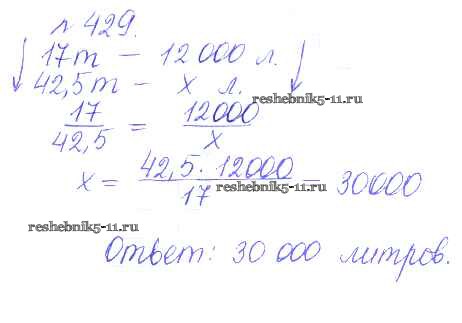 № 429.
17т – 12 000 л.
42,5т – х л.
reshebnik5-11.ru
17/42,5 = 12000/х
х = 42,5 · 12000/17 = 30000
reshebnik5-11.ru
reshebnik5-11.ru
Ответ: 30 000 литров.